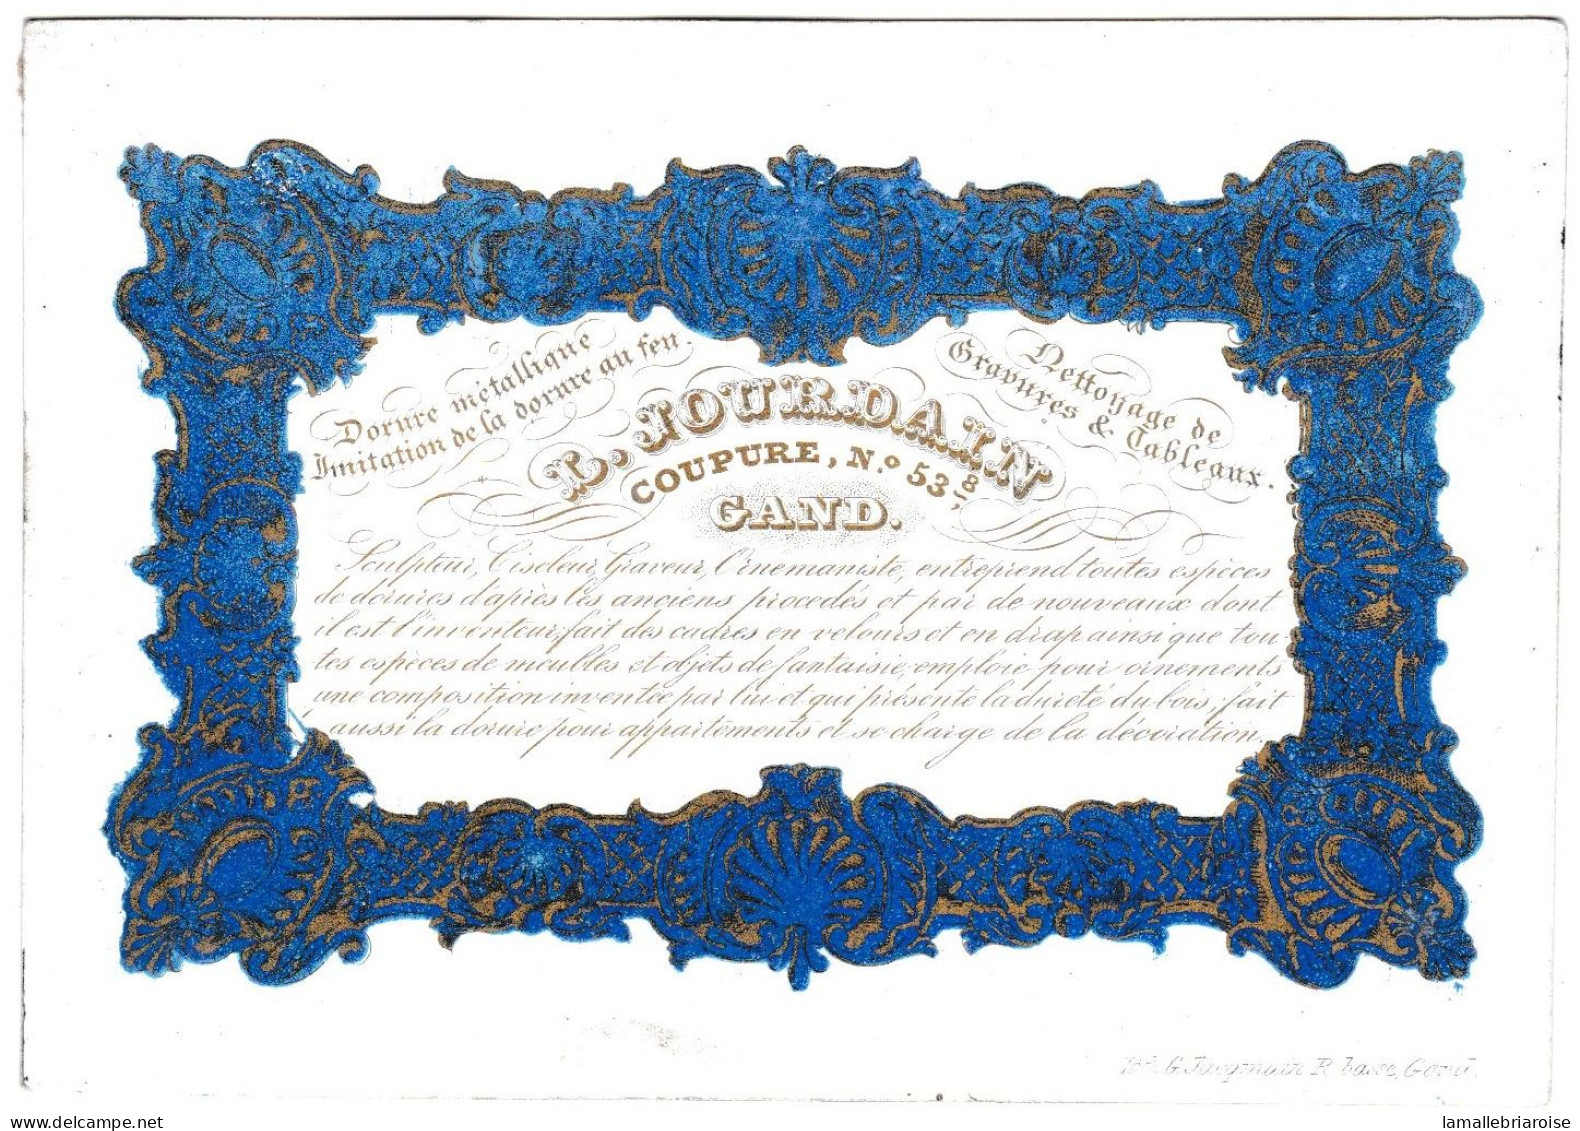 Dorure métallique
Imitation de la dorure au feu.
Nettoyage de
Gravures & Tableaux.
L. JOURDAIN
COUPURE, N.º 53 8
GAND.
Sculpteur, Ciseleur, Graveur, Ornemaniste, entreprend toutes espèces
de dorures d'après les anciens procedés et par de nouveaux dont
il est l'inventeur; fait des cadres en velours et en drap ainsi que tou-
tes espèces de meubles et objets de fantaisie; emploie pour ornements
une composition inventée par lui et qui présente la dureté du bois; fait
aussi la dorure pour appartements et se charge de la décoration.
G. Jacqmain R. basse, Gand.
lamallebriaroise